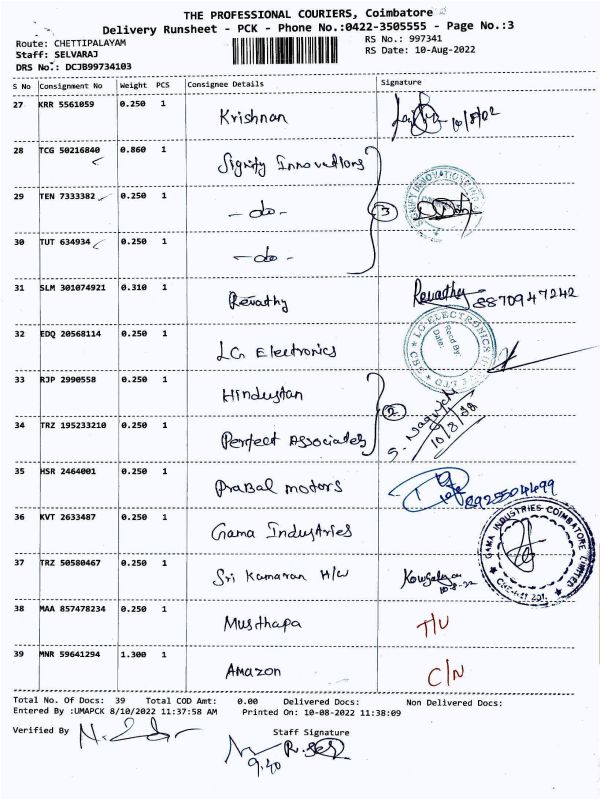 THE PROFESSIONAL COURIERS, Coimbatore
Delivery Runsheet - PCK - Phone No.:0422-3505555 - Page No.:3
Route: CHETTIPALAYAM RS No.: 997341
Staff: SELVARAJ RS Date: 10-Aug-2022
DRS No.: DCJB99734103
S No Consignment No Weight PCS Consignee Details Signature
27 KRR 5561059 0.250 1 Krishnan
28 TCG 50216840 0.860 1 Signify Innovations
29 TEN 7333382 0.250 1 -do- 3
30 TUT 634934 0.250 1 -do-
31 SLM 301074921 0.310 1 Revathy Revathy 8870947242
32 EDQ 20568114 0.250 1 LG Electronics LG ELECTRONICS Recd By: Date:
33 RJP 2990558 0.250 1 Hindustan
34 TRZ 195233210 0.250 1 Perfect Associates 2 10/8/22
35 HSR 2464001 0.250 1 Prabal motors
36 KVT 2633487 0.250 1 Gama Industries GAMA INDUSTRIES COIMBATORE LIMITED
37 TRZ 50580467 0.250 1 Sri Kumaran H/W 10-8-22
38 MAA 857478234 0.250 1 Musthapa T/U
39 MNR 59641294 1.300 1 Amazon C/N
Total No. Of Docs: 39 Total COD Amt: 0.00 Delivered Docs: Non Delivered Docs:
Entered By :UMAPCK 8/10/2022 11:37:58 AM Printed On: 10-08-2022 11:38:09
Verified By Staff Signature
9.40